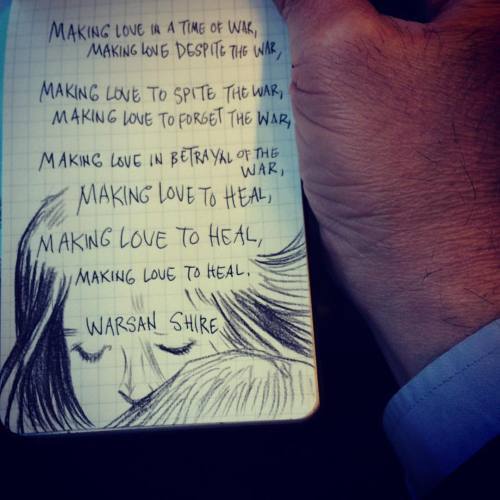 MAKING LOVE IN A TIME OF WAR,
MAKING LOVE DESPITE THE WAR,
MAKING LOVE TO SPITE THE WAR,
MAKING LOVE TO FORGET THE WAR,
MAKING LOVE IN BETRAYAL OF THE
WAR,
MAKING LOVE TO HEAL,
MAKING LOVE TO HEAL,
MAKING LOVE TO HEAL.
WARSAN SHIRE